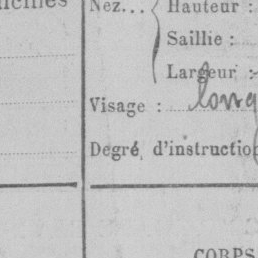 Nez... Hauteur :
Saillie :
Largeur :
Visage : long
Degré d'instruction
CORPS